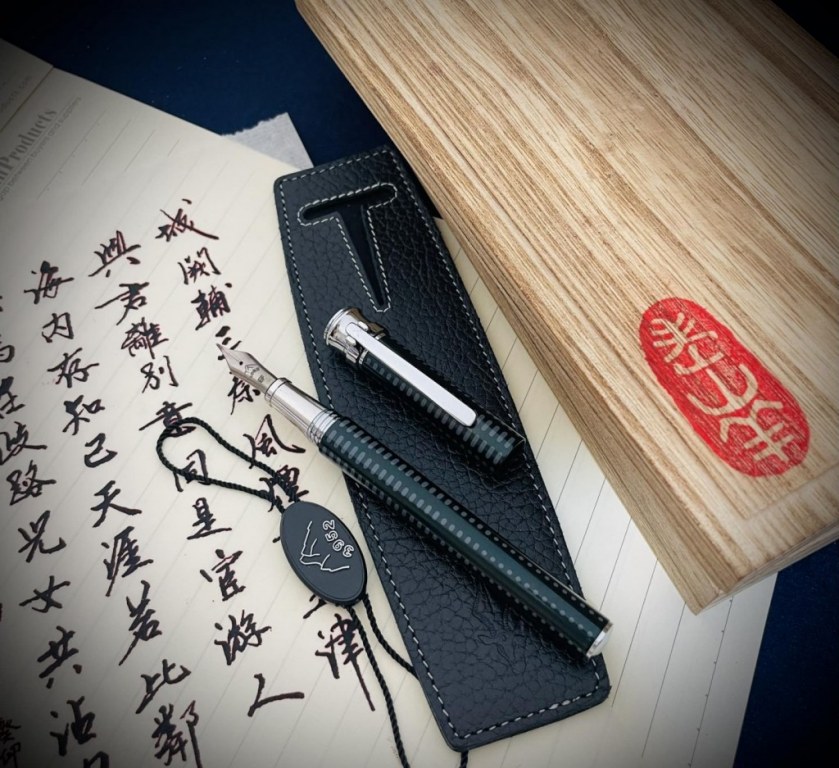 城闕輔三秦風煙津
與君離別意同是宦游人
海内存知己天涯若比鄰
為在歧路兒女共沾
Products